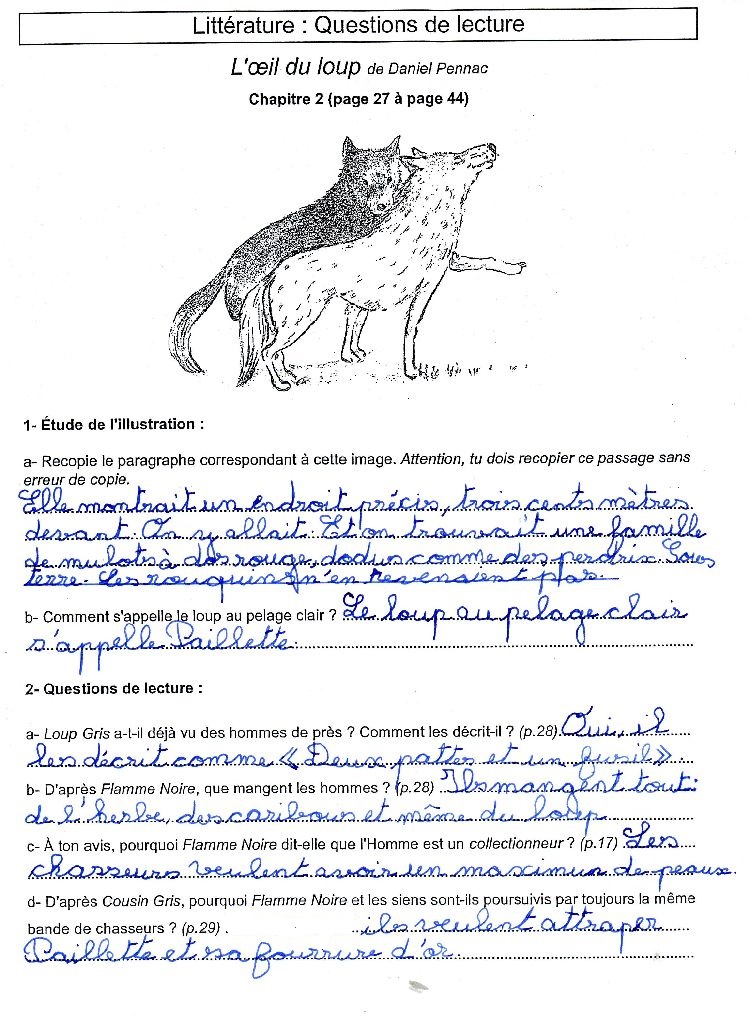 Littérature : Questions de lecture
L'œil du loup de Daniel Pennac
Chapitre 2 (page 27 à page 44)
1- Étude de l'illustration :
a- Recopie le paragraphe correspondant à cette image. Attention, tu dois recopier ce passage sans
erreur de copie.
Elle montrait un endroit précis, trois cents mètres
devant. On y allait. Et on trouvait une famille
de mulots à dos rouge, dodus comme des perdrix. Sous
terre. Les rouquins n'en revenaient pas.
b- Comment s'appelle le loup au pelage clair ? Le loup au pelage clair
s'appelle Paillette.
2- Questions de lecture :
a- Loup Gris a-t-il déjà vu des hommes de près ? Comment les décrit-il ? (p.28) Oui, il
les décrit comme « Deux pattes et un fusil »
b- D'après Flamme Noire, que mangent les hommes ? (p.28) Ils mangent tout :
de l'herbe, des caribous et même du loup
c- À ton avis, pourquoi Flamme Noire dit-elle que l'Homme est un collectionneur ? (p.17) Les
chasseurs veulent avoir un maximun de peaux.
d- D'après Cousin Gris, pourquoi Flamme Noire et les siens sont-ils poursuivis par toujours la même
bande de chasseurs ? (p.29) . ils veulent attraper
Paillette et sa fourrure d'or.